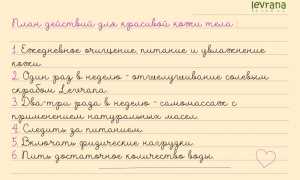 levrana
План действий для красивой кожи тела :
1. Ежедневное очищение, питание и увлажнение
кожи.
2. Один раз в неделю - отшелушивание солевым
скрабом Levrana.
3. Два-три раза в неделю - самомассаж с
применением натуральных масел.
4. Следить за питанием.
5. Включать физические нагрузки.
6. Пить достаточное количество воды.